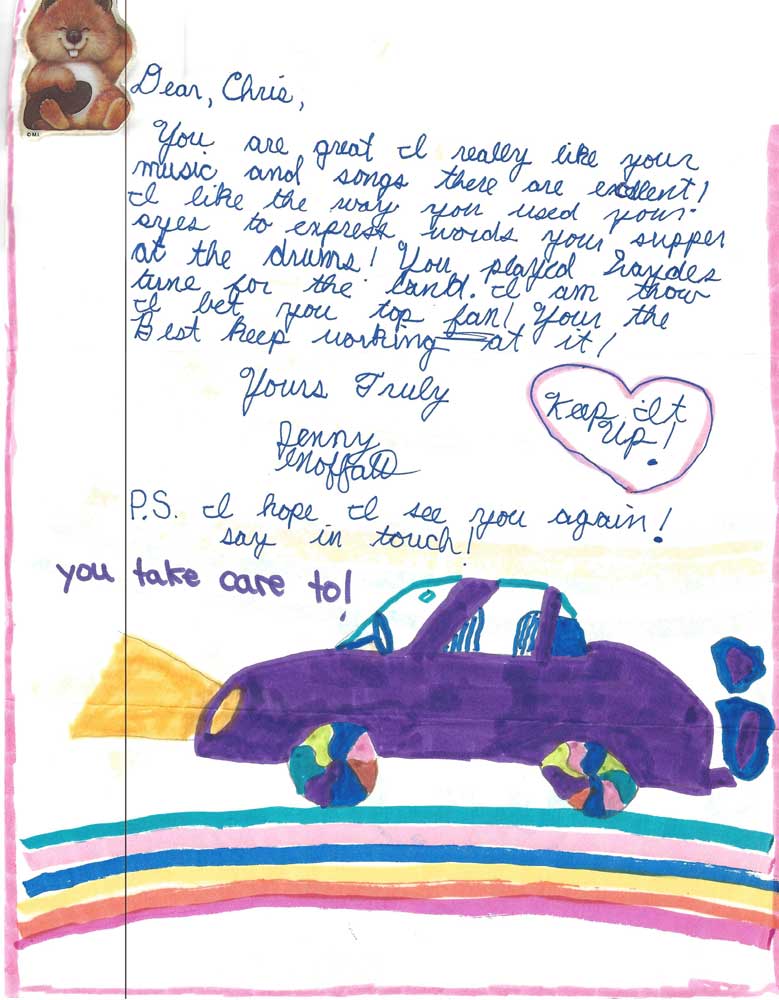 Dear, Chris,
You are great I really like your
music and songs there are excellent!
I like the way you used your
syes to express words your supper
at the drums! You played Haydes
tune for the land. I am thow
I bet you top fan! Your the
Best keep working at it!
Yours Truly
Jenny
Moffatt
Keep It
Up!
P.S. I hope I see you again!
say in touch!
you take care to!